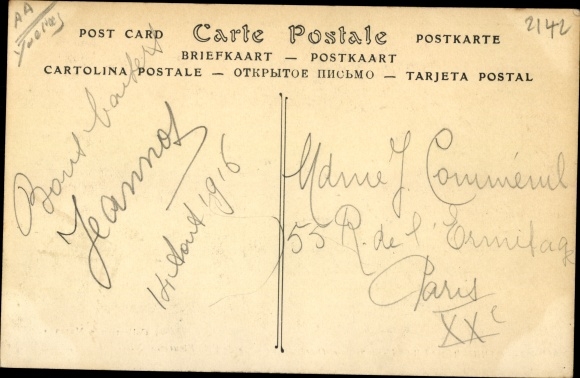 AA
2142
POST CARD Carte Postale POSTKARTE
BRIEFKAART — POSTKAART
CARTOLINA POSTALE — ОТКРЫТОЕ ПИСЬМО — TARJETA POSTAL
Bons baisers
Jeannot
14 Aout 1916
Mdme J Comménil
55 R. de l'Ermitage
Paris
XXe